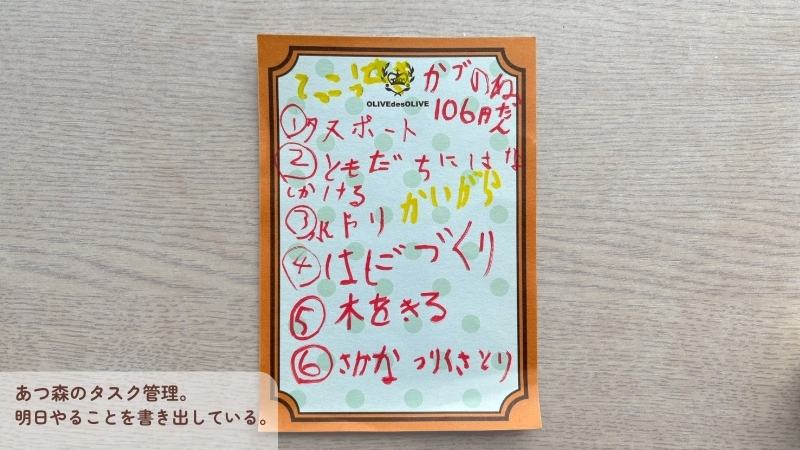 てっこうせき
カブのねだん
106
OLIVEdesOLIVE
①タスポート
②ともだちにはな
しかける
かいがら
③水やり
④はしづくり
⑤木をきる
⑥さかなつりくさとり
あつ森のタスク管理。
明日やることを書き出している。